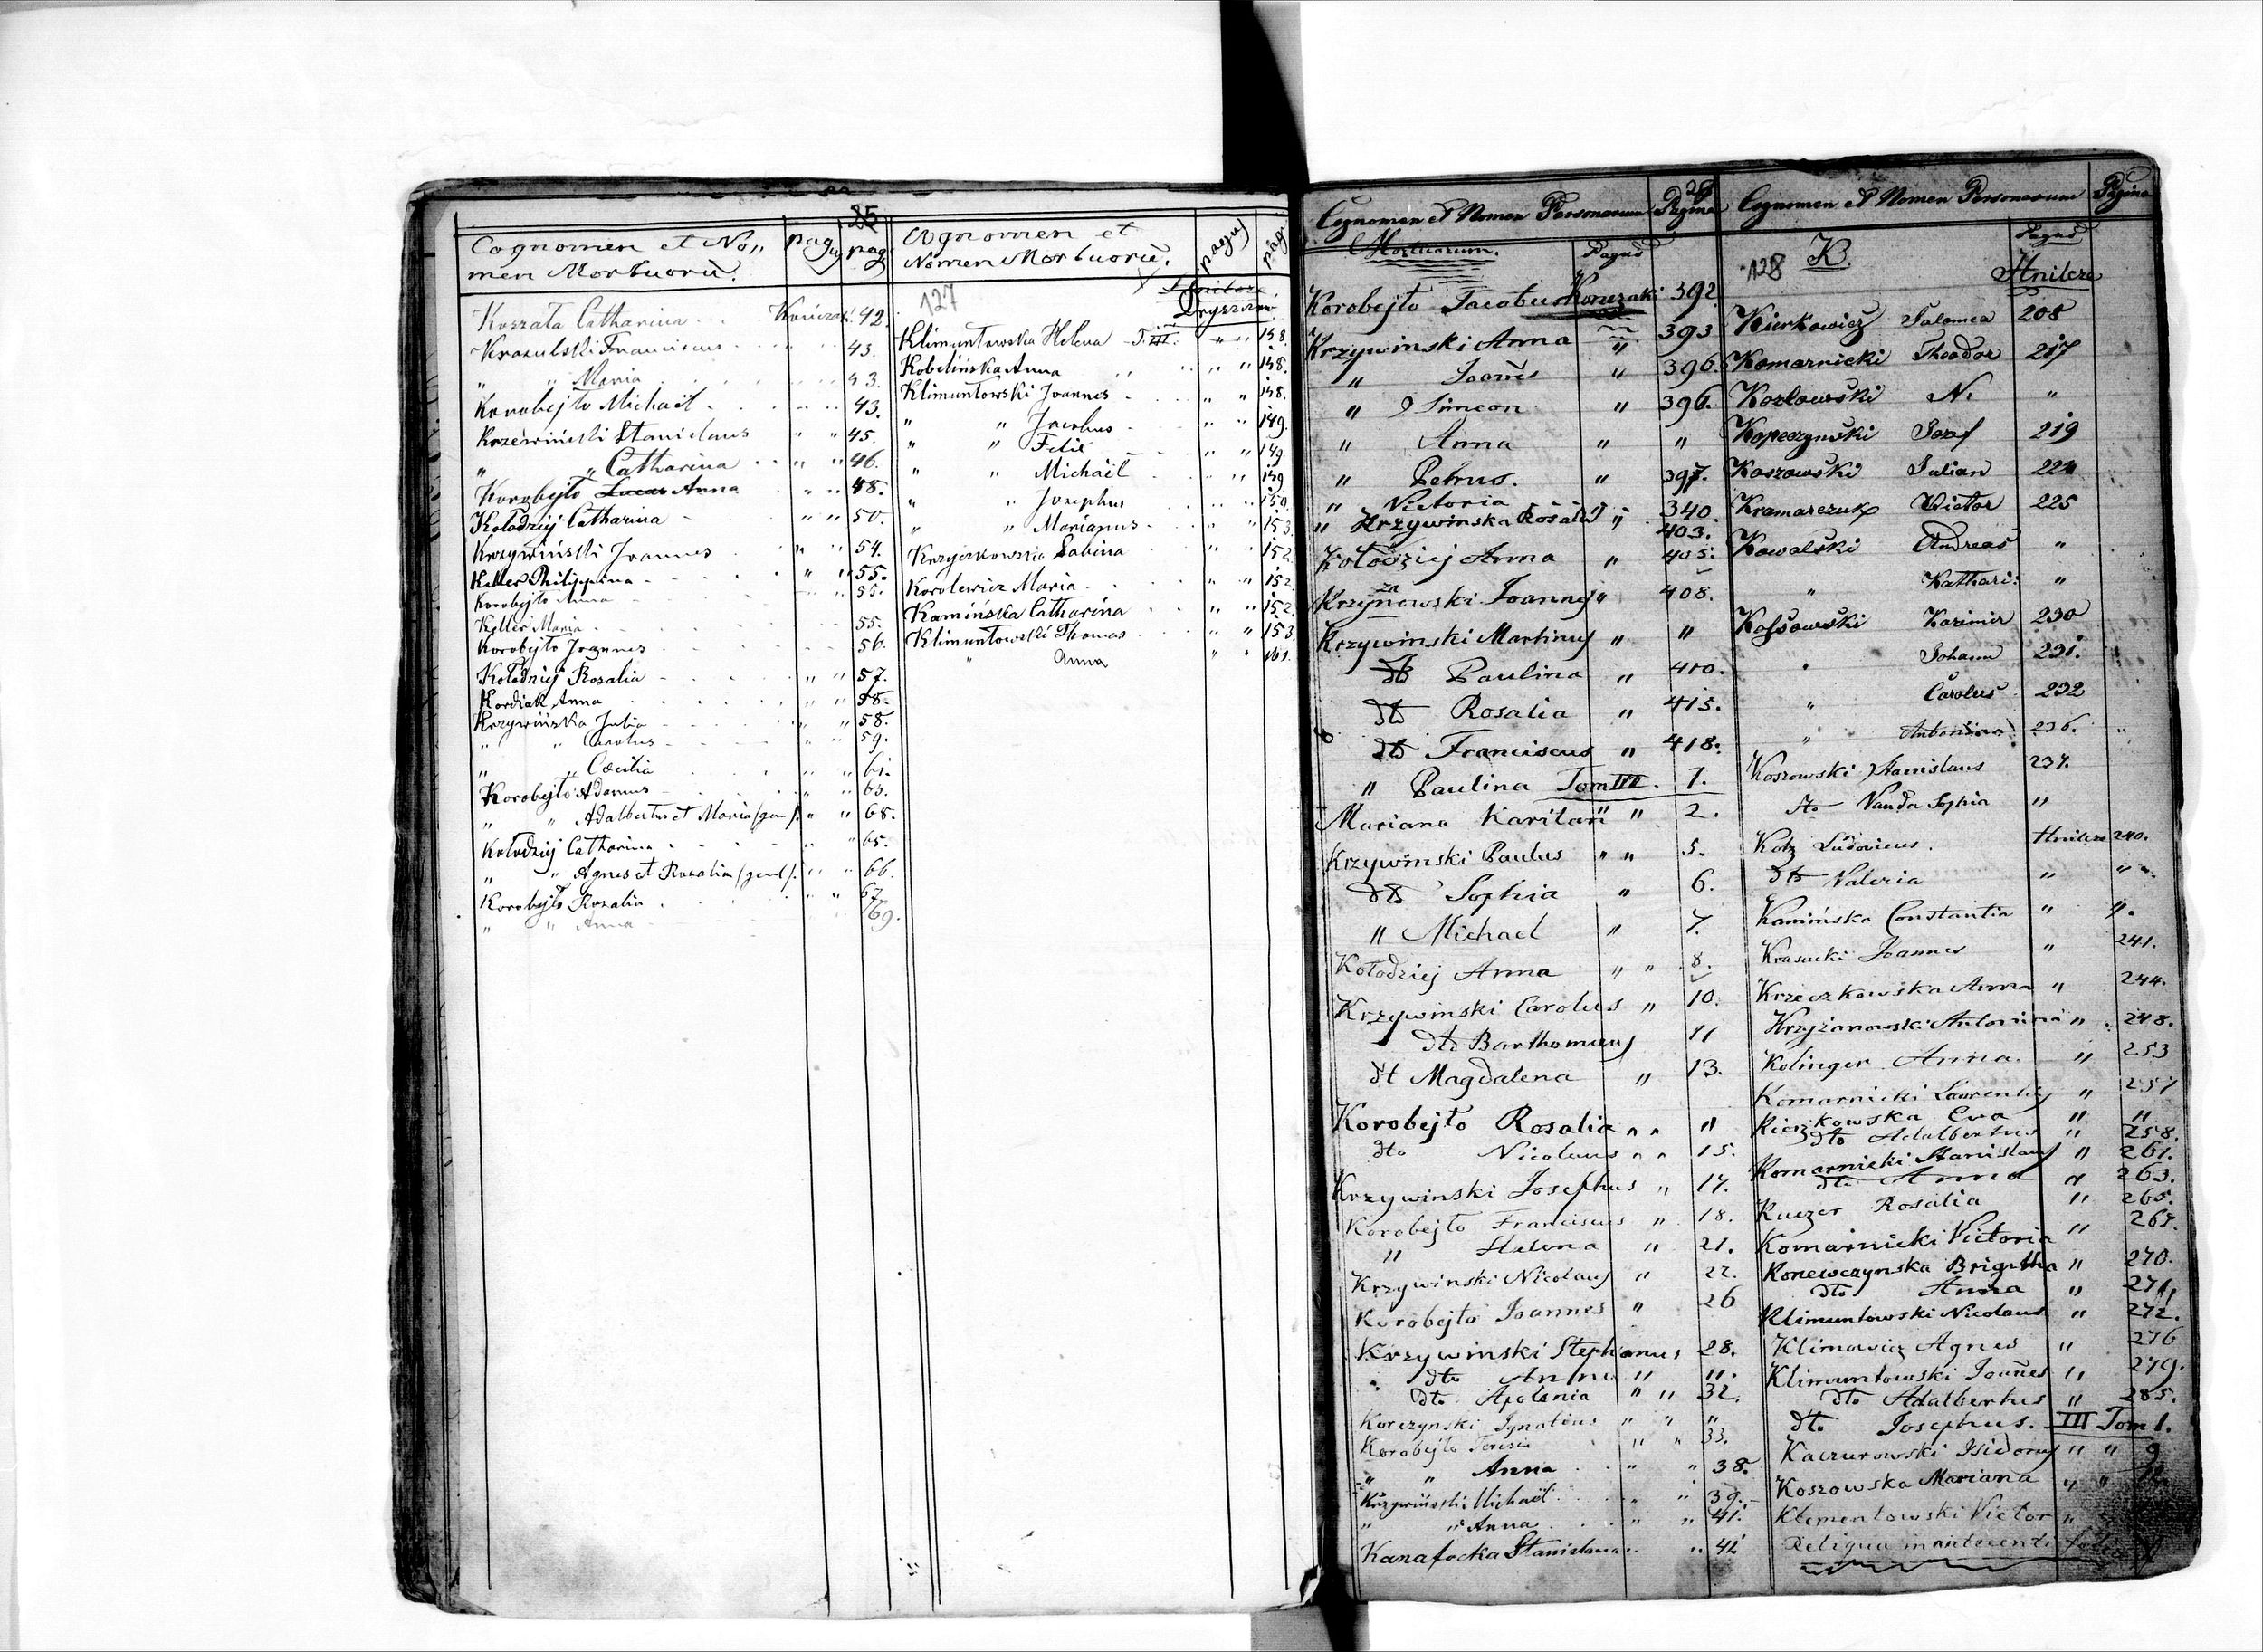 25
Cognomen et No„
men Mortuorū.
pagus
pag
Koszała Catharina Kończak. 42.
Krasulski Franciscus 43.
„ „ Maria 43.
Korobejło Michaël 43.
Krzewiński Stanislaus „ „ 45.
„ „ Catharina „ „ 46.
Korobejło Lucas Anna „ „ 48.
Kołodziej Catharina „ „ 50.
Krzywiński Joannes „ „ 54.
Keller Philippina „ „ 55.
Korobejło Anna 55.
Keller Maria 55.
Korobejło Joannes 56.
Kołodziej Rosalia „ „ 57.
Kordiak Anna 58.
Krzywińska Julia „ „ 58.
„ „ Carolus „ „ 59.
„ „ Cæcilia „ „ 61.
Korobejło Adamus „ „ 63.
„ „ Adalbertus et Maria /gem/. „ „ 68.
Kołodziej Catharina „ „ 65.
„ „ Agnes et Rosalia /gem/. „ „ 66.
Korobejło Rozalia „ „ 67.
„ „ Anna 69.
Cognomen et
Nomen Mortuorū.
pagus
pag.
127
Klimuntowska Helena T. III. „ „ 148.
Kobelińska Anna „ „ 148.
Klimuntowski Joannes „ „ 148.
„ „ Jacobus „ „ 149.
„ „ Felix „ „ 149
„ „ Michaël „ „ 149
„ „ Josephus „ „ 150.
„ „ Marianus „ „ 153.
Sabina „ „ 152.
Korolewicz Maria „ „ 152.
Kamińska Catharina „ „ 152.
Klimuntowski Thomas „ „ 153.
„ Anna „ „ 161.
Cognomen et Nomen Personarum Pagina
Mortuorum. Pagus
Korobejło Jacobus Konczaki 392
Krzywinski Anna „ 393
„ Joañes „ 396.
„ Simeon „ 396.
„ Anna „ „
„ Petrus. „ 397.
„ Victoria „ 340.
„ Krzywinska Rosalia „ 403.
Kołodziej Anna „ 405.
Krzyzanowski Joannes „ 408.
Krzywinski Martinus „ „
dto Paulina „ 410.
dto Rosalia „ 415.
dto Franciscus „ 418.
„ Paulina Tom III. 1.
Mariana „ 2.
Krzywinski Paulus „ „ 5.
dto Sophia „ 6.
„ Michael „ 7.
Kołodziej Anna „ „ 8.
Krzywinski Carolus „ 10.
dto Barthomeus 11
dt Magdalena „ 13.
Korobejło Rosalia „ „ „
dto Nicolaus „ „ 15.
Krzywinski Josephus „ 17.
Korobejło Franciscus „ 18.
„ Helena „ 21.
Krzywinski Nicolaus „ 22.
Korobejło Joannes „ 26
Krzywinski Stephanus 28.
„ dto Anna „ „.
dto Apolonia „ „ 32.
Korczynski Ignatius „ „ „
Korobejło Teresia „ „ 33.
„ „ Anna „ „ 38.
Krzywiński Michaël „ „ 39.
„ „ Anna „ „ 41.
Stanislaus „ 42
Cognomen et Nomen Personarum Pagina
128 K. Pagus
Hnilcze
Kierkowicz Salomea 208
Komarnicki Theodor 217
Kozłowski N. „
Kopeczynski Josef 219
Koszowski Julian 224
Kramarczuk Victor 225
Kowalski Andreas „
„ Kathari: „
Kossowski Kazimir 230
„ Johann 231.
„ Carolus 232
„ Antonina 236.
Koszowski Stanislaus 237.
dto Vanda Sophia „
Kotz Ludovicus. Hnilcze 240.
dto Valeria „ „
Kamińska Constantia „ „.
Krasucki Joannes „ 241.
Krzeczkowska Anna „ 244.
Krzyżanowski Antonina „ 248.
Kolinger Anna. „ 253
Komarnicki Laurentius „ 257
Kieczkowska Eva „ „
dto Adalbertus „ 258.
Komarnicki Stanislaus „ 261.
dto Anna „ 263.
Kuczer Rosalia „ 265.
Komarnicki Victoria „ 267.
Konewczynska Brigitha „ 270.
dto Anna „ 271,
Klimuntowski Nicolaus „ 272.
Klimowicz Agnes „ 276
Klimuntowski Joañes „ 279.
dto Adalbertus „ 285.
dto Josephus. III Tom 1.
Kaczurowski Isidorus „ „ 9
Koszowska Mariana „ „
Klementowski Victor „
Reliqua in